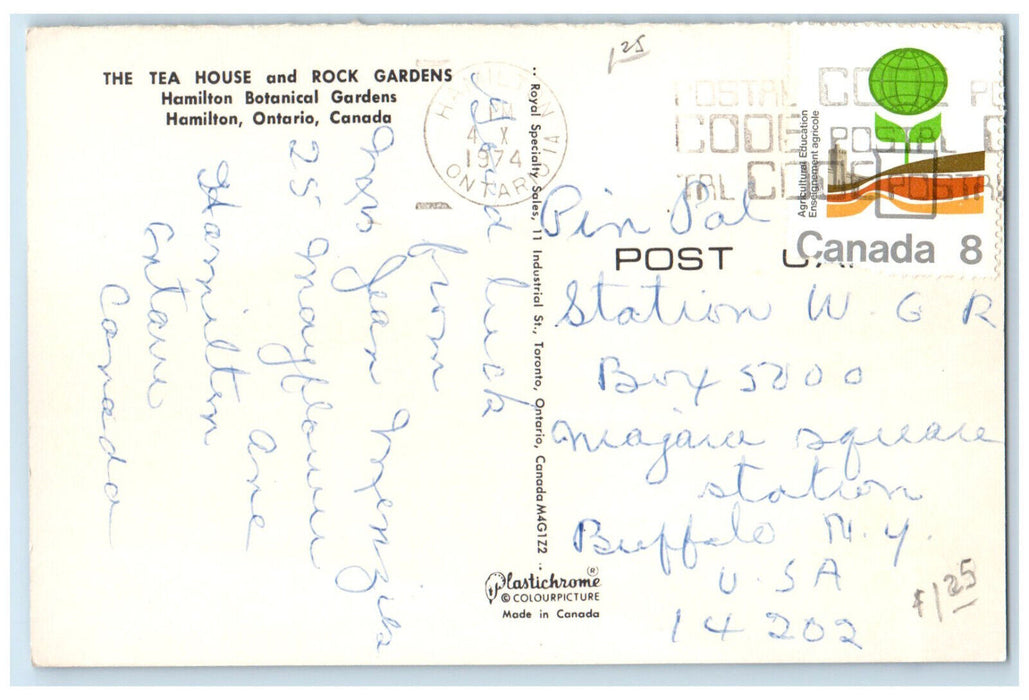 THE TEA HOUSE and ROCK GARDENS
Hamilton Botanical Gardens
Hamilton, Ontario, Canada
Good luck
from
Mrs Jean Menzies
25 Mayflower
Ave
Hamilton
Ontario
Canada
HAMILTON
4 X
1974
ONTARIO
Royal Specialty Sales, 11 Industrial St., Toronto, Ontario, Canada M4G1Z2
Plastichrome ®
© COLOURPICTURE
Made in Canada
1 25
POSTAL CODE
CODE POSTAL
CODE POSTAL
Agricultural Education
Enseignement agricole
Canada 8
POST
Pin Pal
Station W. G R
Box 5000
Niagara square
station
Buffalo N.Y.
U.S A
14202
$1 25